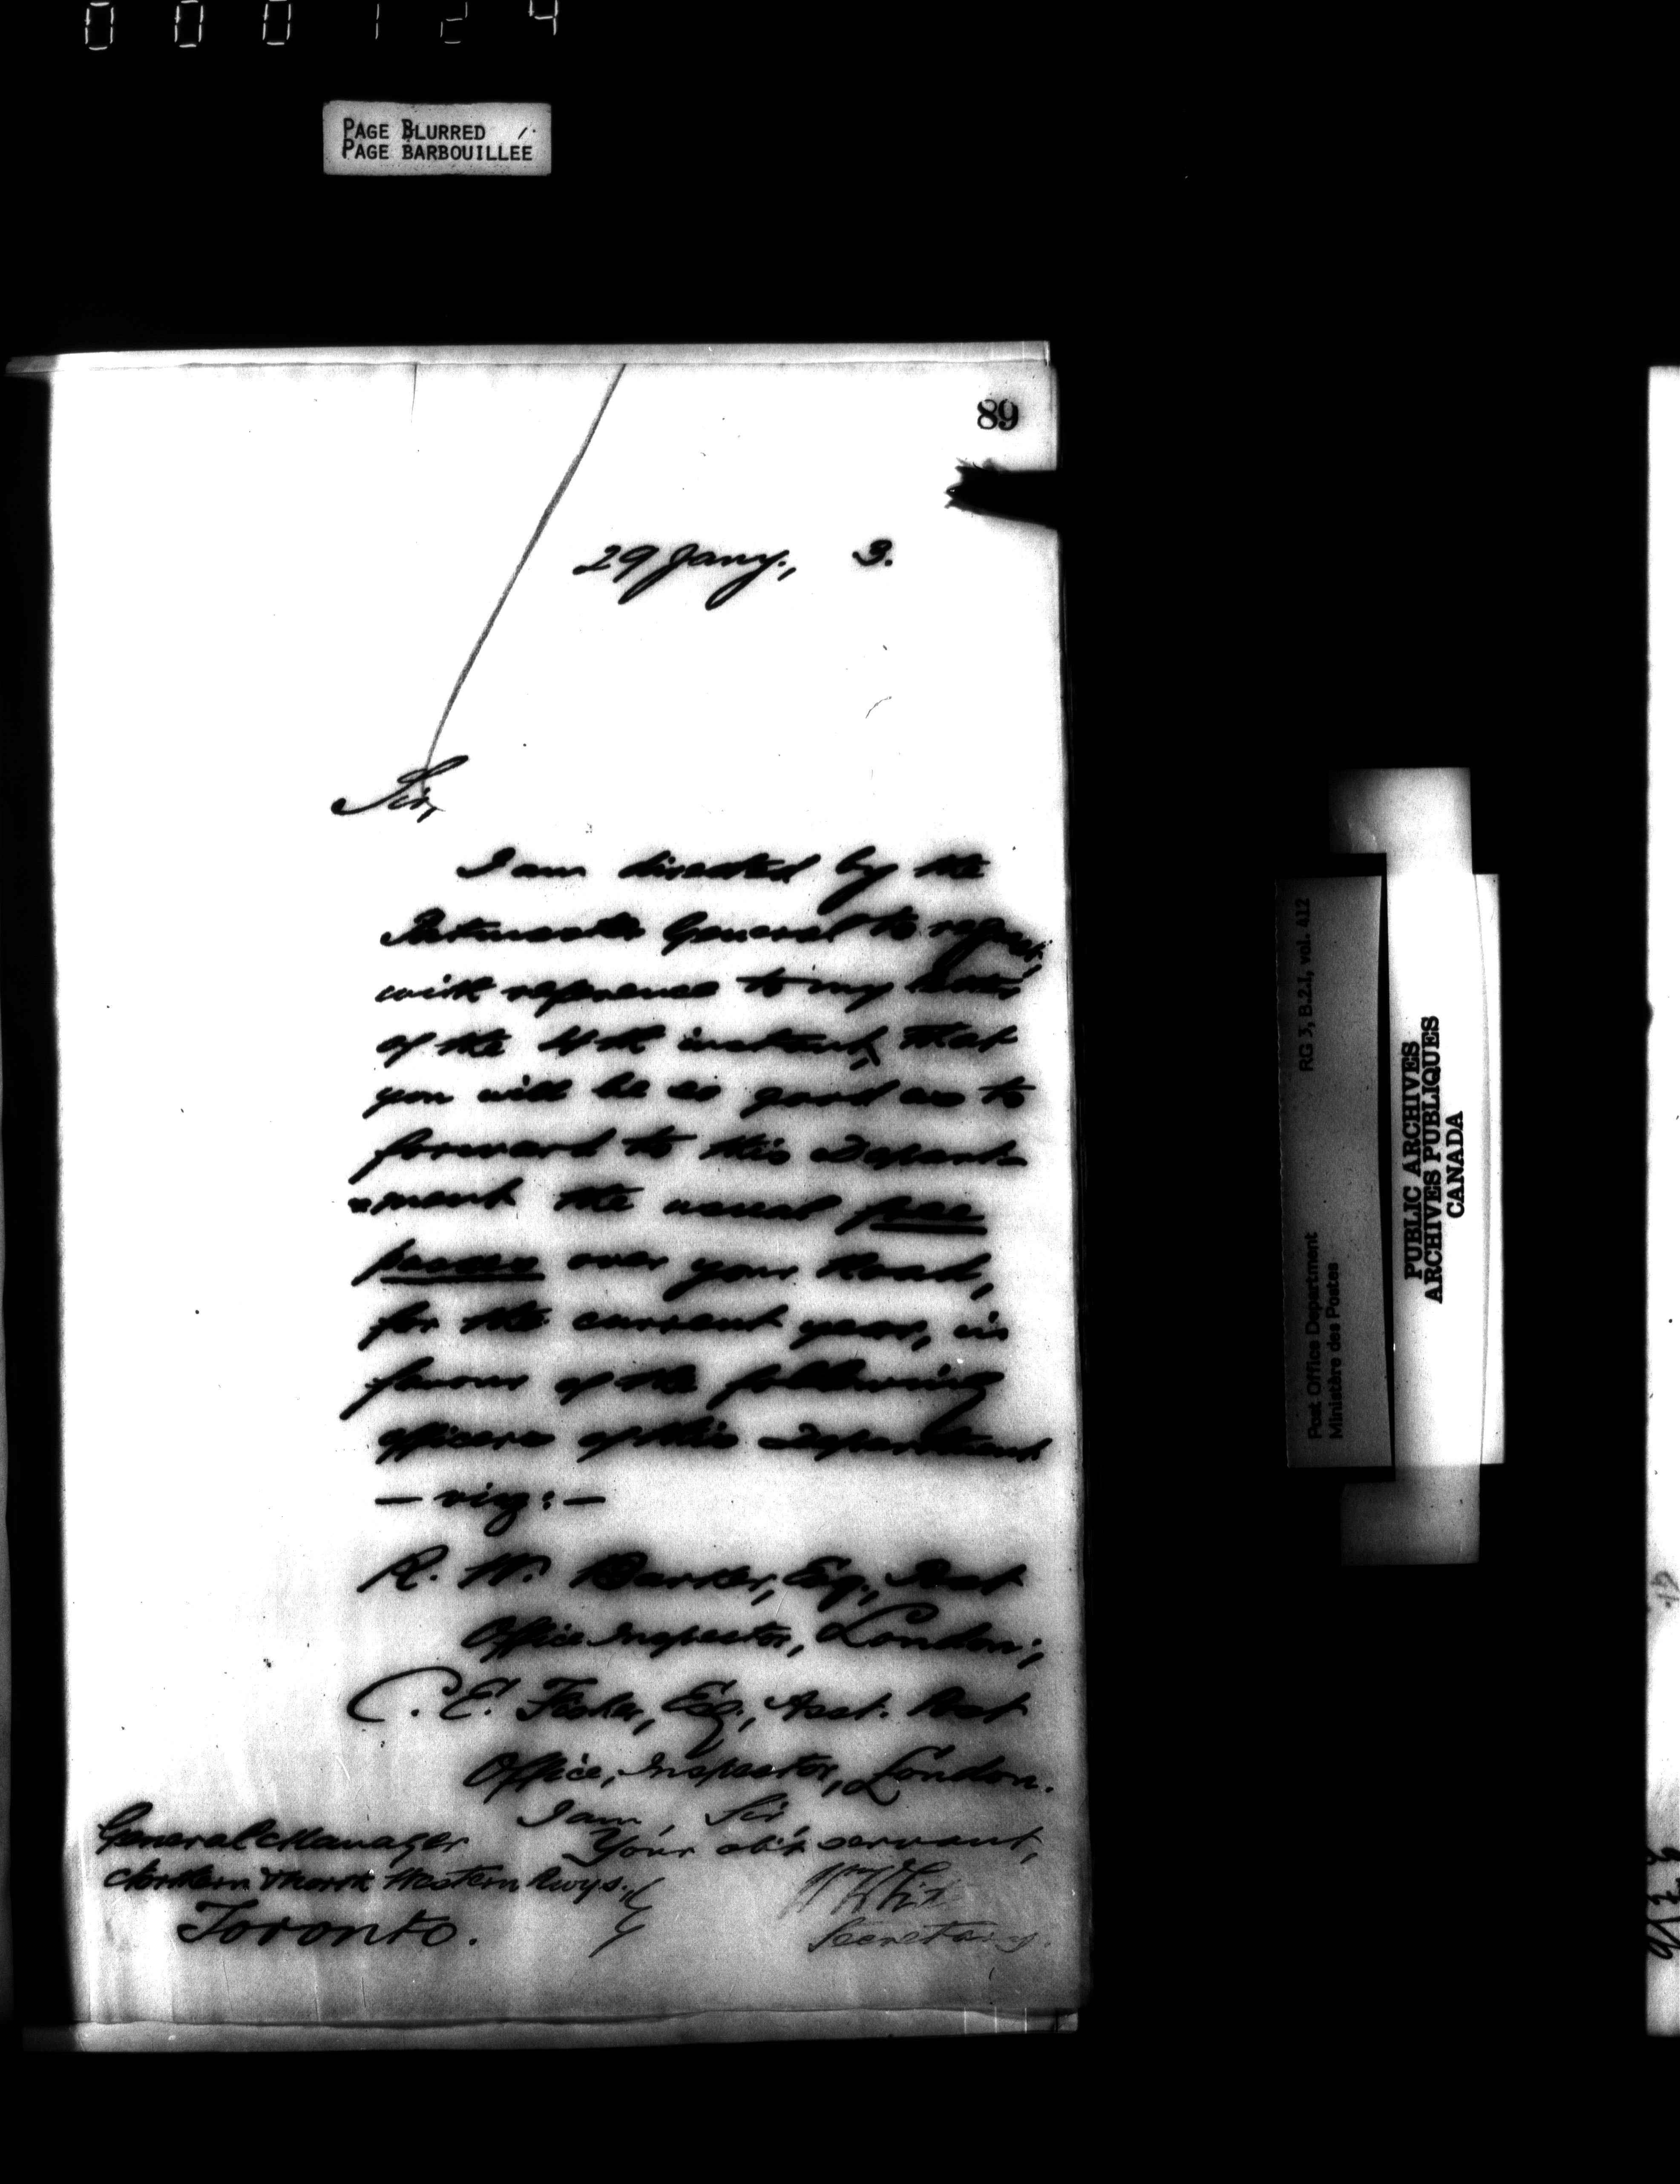 000124
PAGE BLURRED
PAGE BARBOUILLEE
89
29 Jany., 3.
Sir,
I am directed by the
Postmaster General to request,
with reference to my letter
of the 4th instant, that
you will be so good as to
forward to this Depart-
-ment the usual free
passes over your Road,
for the current year, in
favour of the following
officers of this Department
— viz: —
R. W. Barker, Esq., Post
Office Inspector, London;
C. E. Fisher, Esq., Asst. Post
Office, Inspector, London.
I am, Sir
Your ob't servant,
Secretary.
General Manager
Northern & North Western Rwys.
Toronto.
Post Office Department
Ministère des Postes
RG 3, B.2.I, vol. 412
PUBLIC ARCHIVES
ARCHIVES PUBLIQUES
CANADA